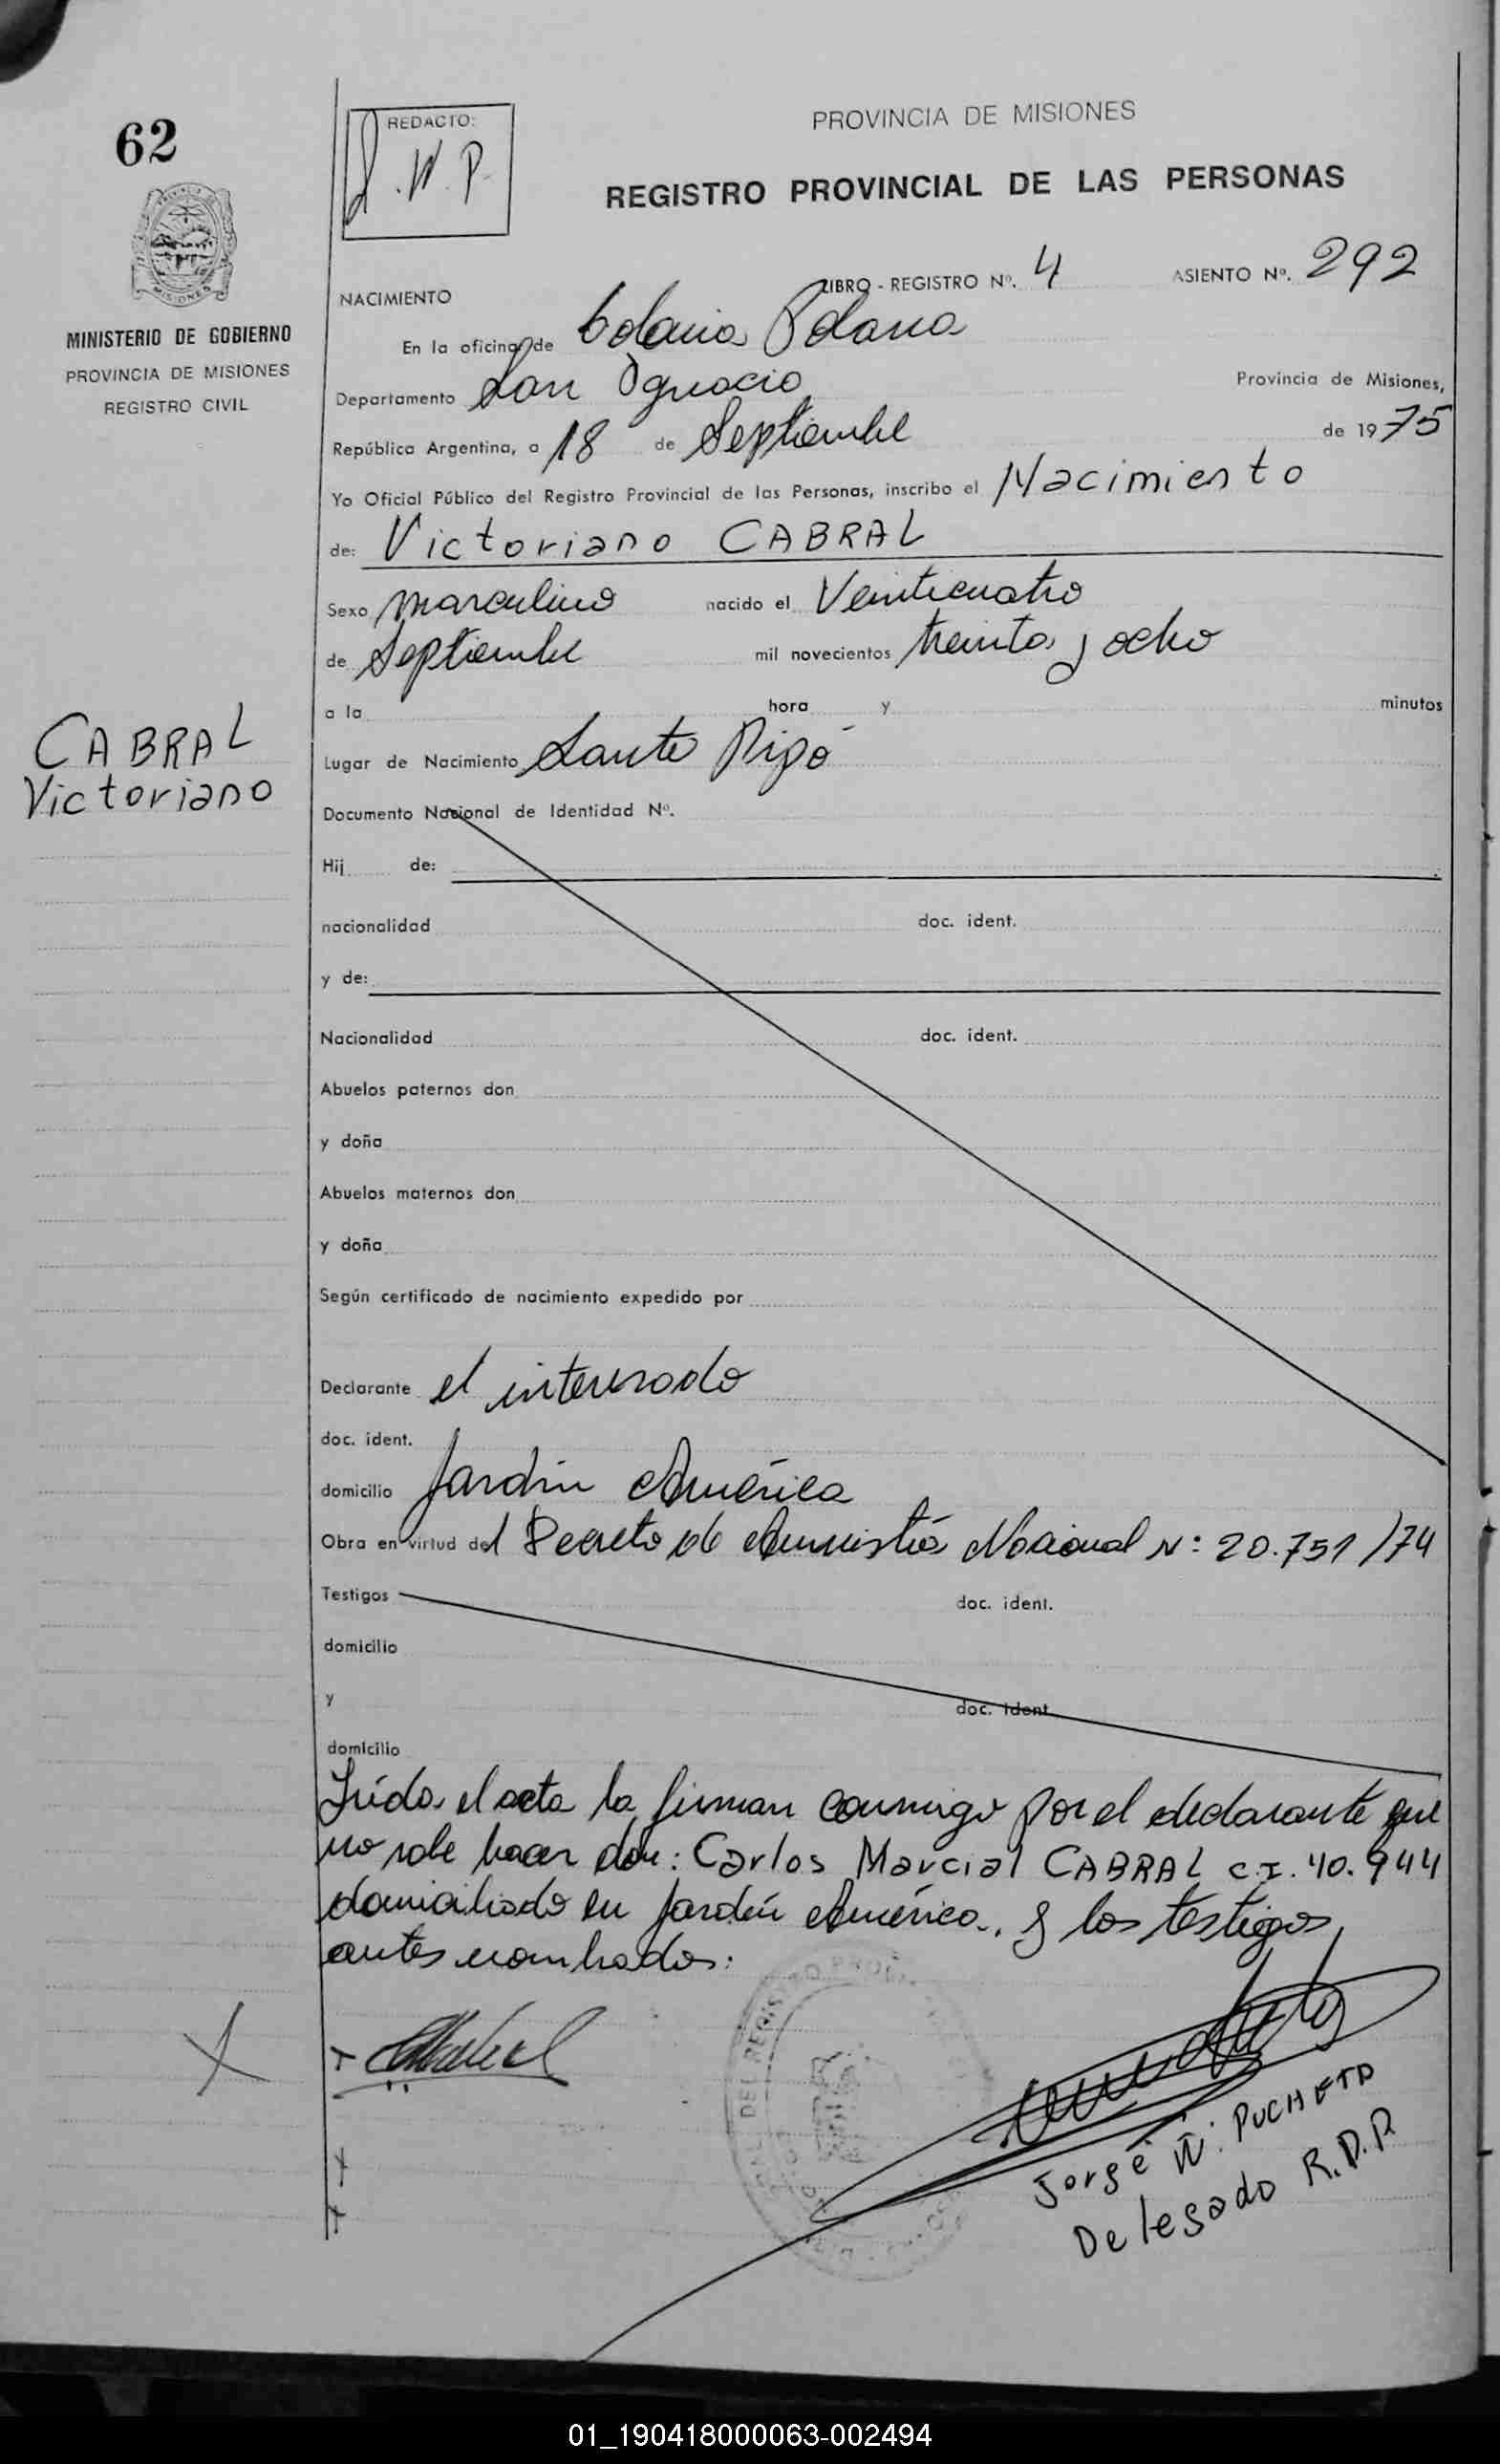 62
REDACTO:
J.W.P.
PROVINCIA DE MISIONES
REGISTRO PROVINCIAL DE LAS PERSONAS
MISIONES
MINISTERIO DE GOBIERNO
PROVINCIA DE MISIONES
REGISTRO CIVIL
NACIMIENTO
LIBRO - REGISTRO Nº. 4 ASIENTO Nº. 292
En la oficina de Colonia Polana
Departamento San Ignacio Provincia de Misiones,
República Argentina, a 18 de Septiembre de 1975
Yo Oficial Público del Registro Provincial de las Personas, inscribo el Nacimiento
de: Victoriano CABRAL
Sexo masculino nacido el Veinticuatro
de Septiembre mil novecientos treinta y ocho
a la hora y minutos
CABRAL
Victoriano
Lugar de Nacimiento Santo Pipó
Documento Nacional de Identidad Nº.
Hij de:
nacionalidad doc. ident.
y de:
Nacionalidad doc. ident.
Abuelos paternos don
y doña
Abuelos maternos don
y doña
Según certificado de nacimiento expedido por
Declarante el interesado
doc. ident.
domicilio Jardín América
Obra en virtud del Decreto de Amnistía Nacional N: 20.751/74
Testigos doc. ident.
domicilio
y doc. ident
domicilio
Leída el acta la firman conmigo por el declarante que
no sabe hacer don: Carlos Marcial CABRAL C.I. 40.944
domiciliado en Jardín América. y los testigos
antes nombrados:
Jorge W. PUCHETA
Delegado R.D.P.
01_190418000063-002494